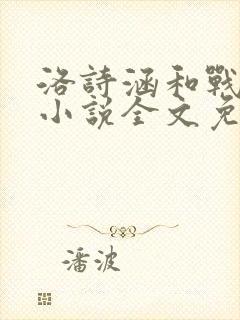 洛詩涵和戰
小說全文免
潘波